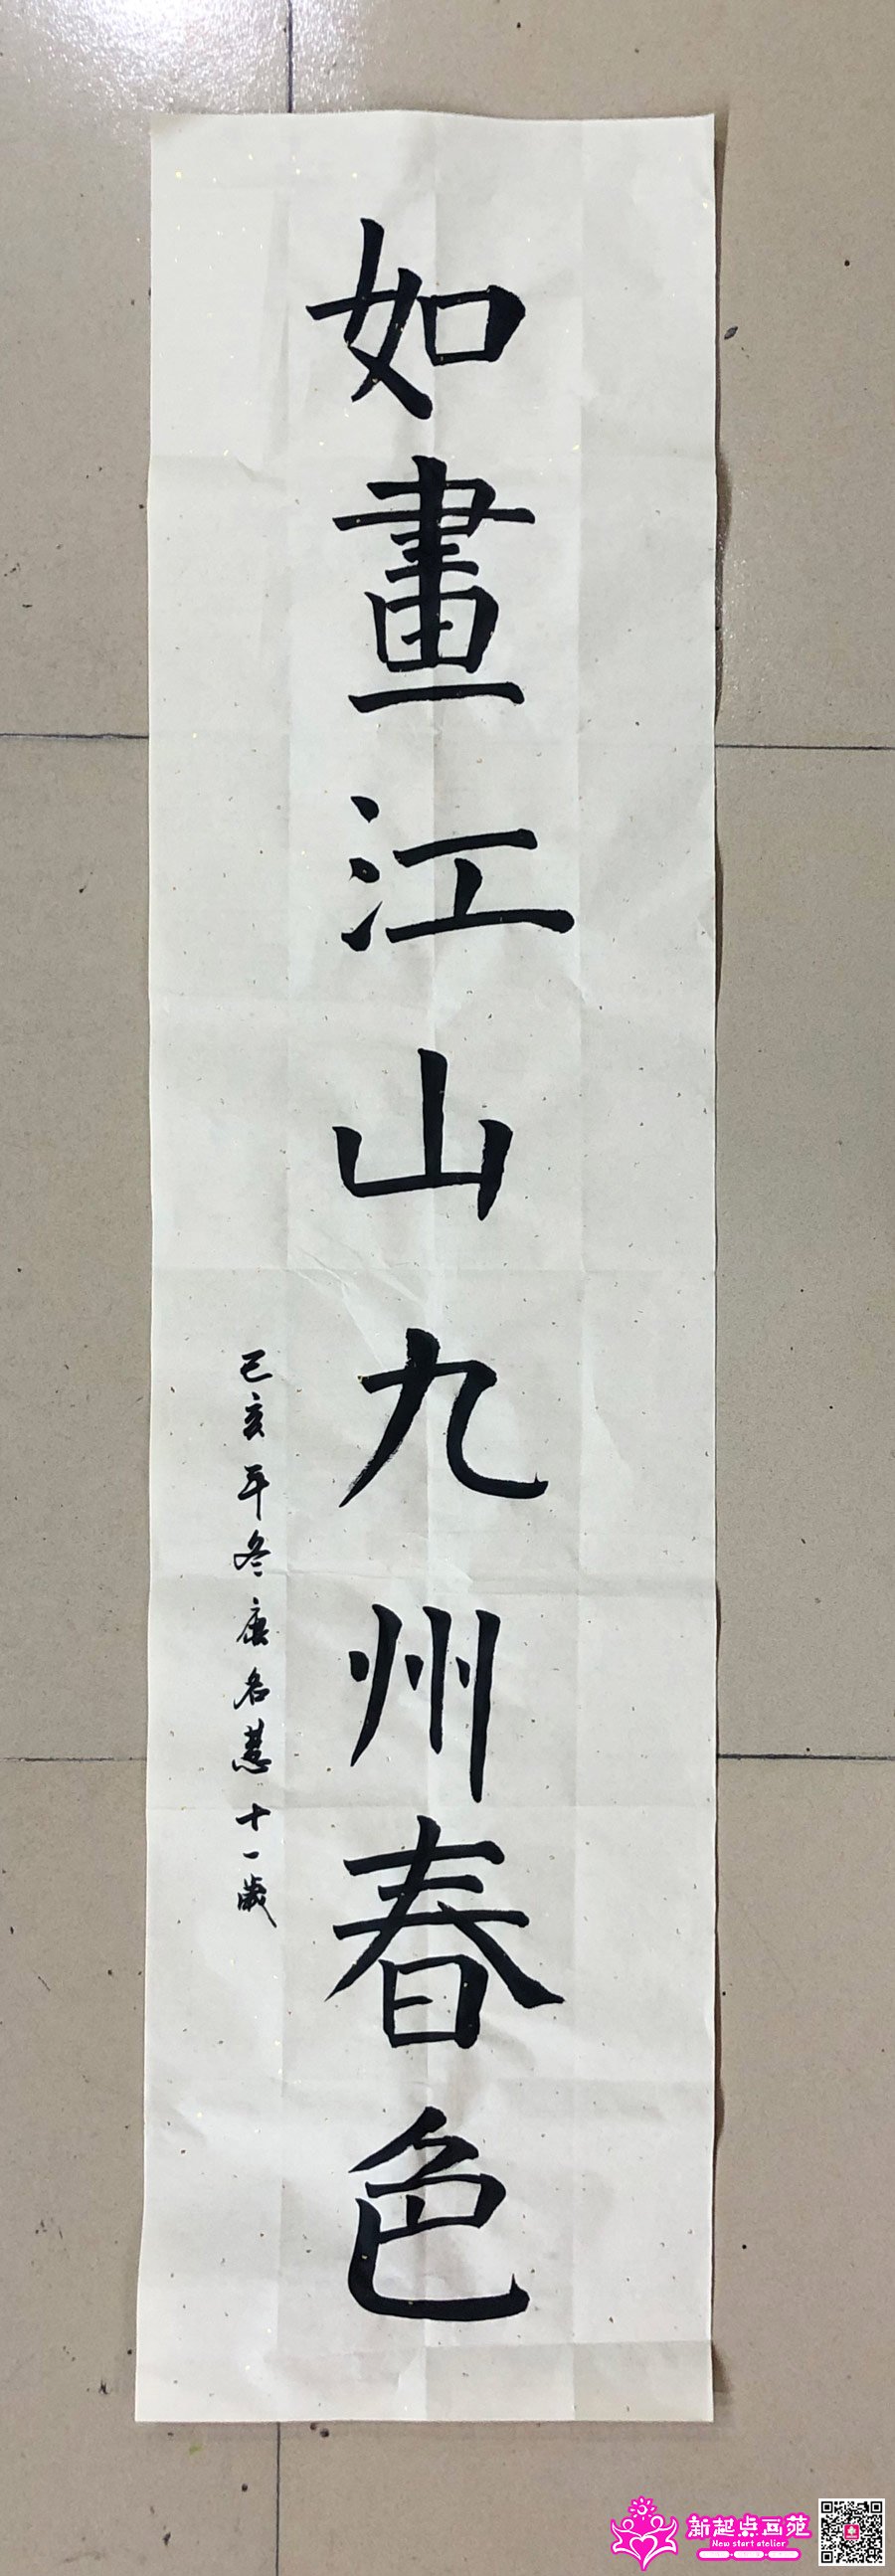 如畫江山九州春色
己亥年冬唐名慧十一歲
新起点画苑
New start atelier